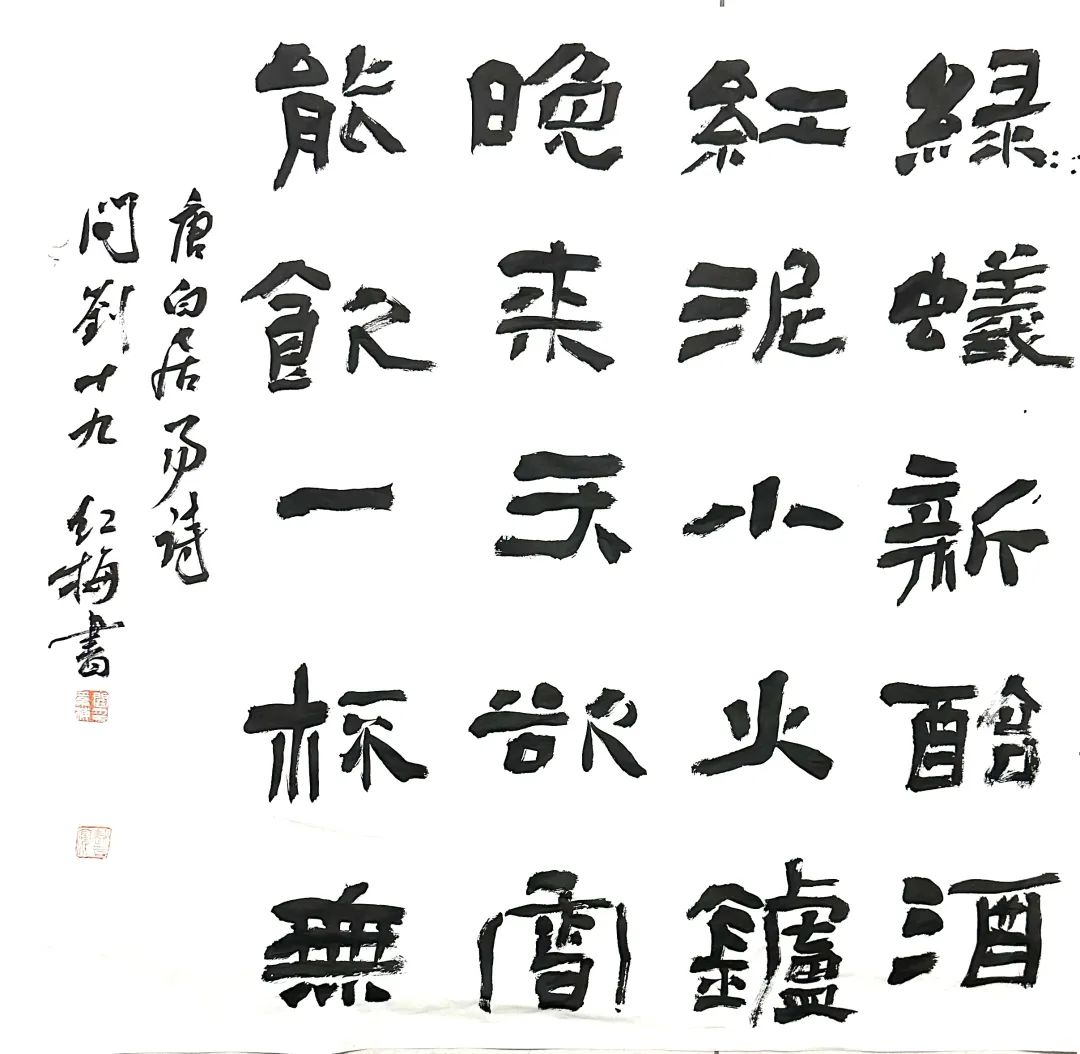 緑蟻新醅酒
紅泥小火鑪
晚来天欲雪
能飲一杯無
唐白居易詩
問劉十九 红梅書